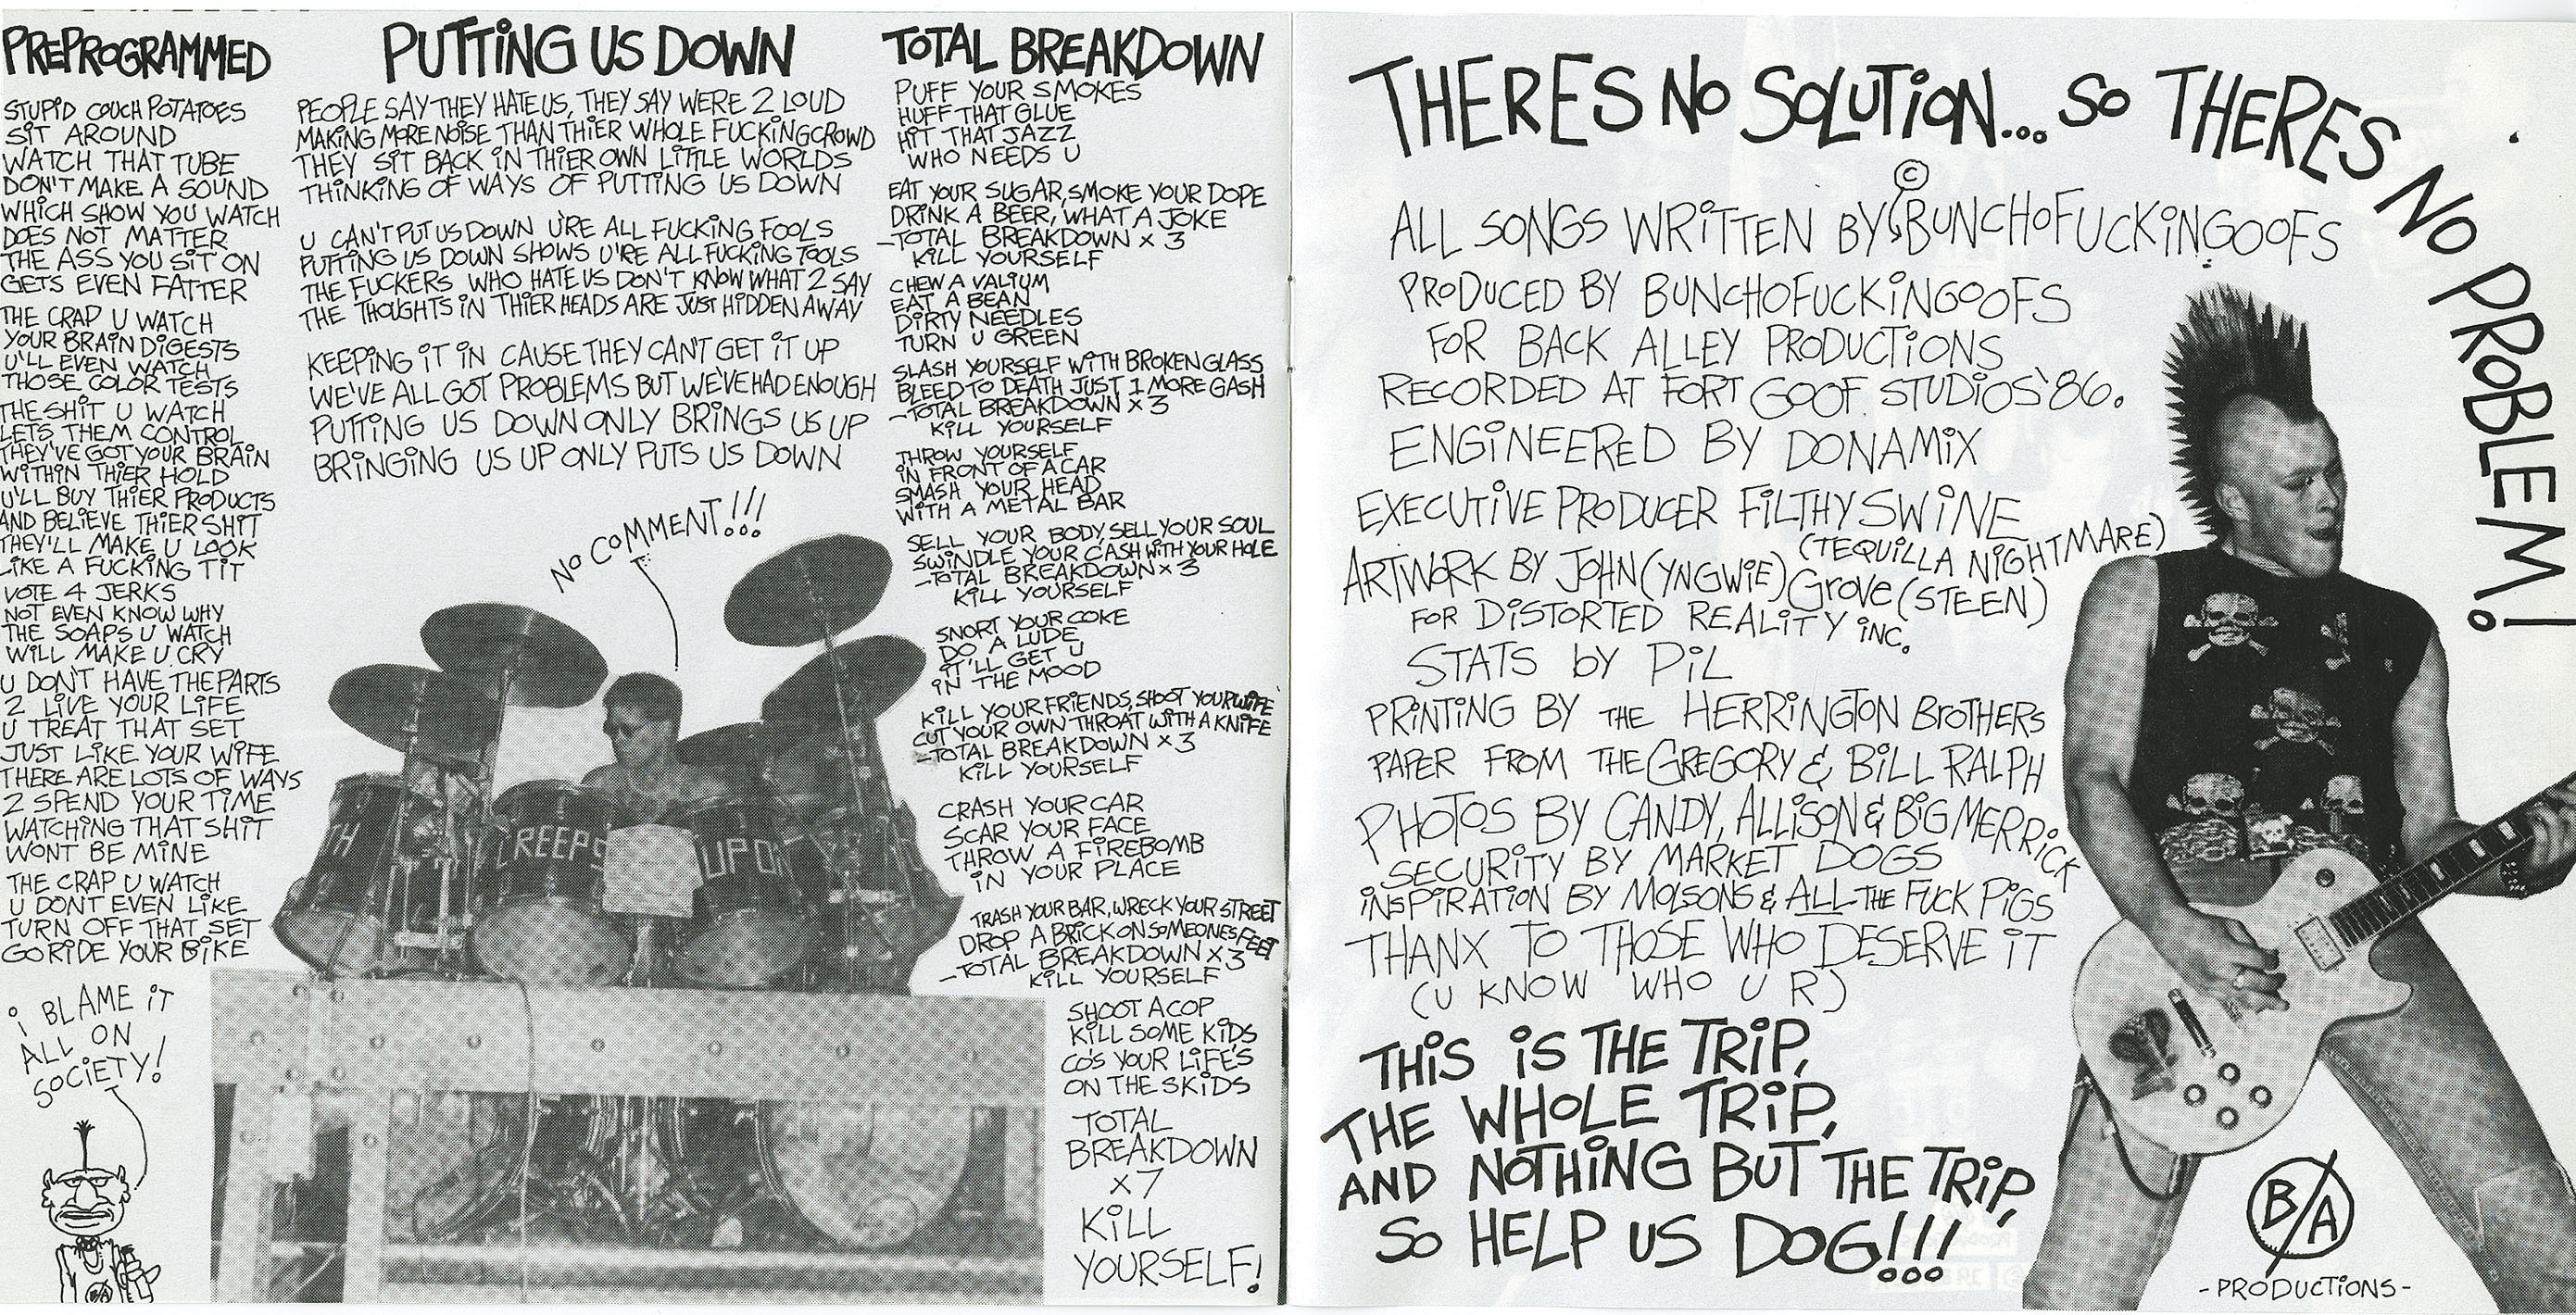 PREPROGRAMMED
STUPID COUCH POTATOES
SIT AROUND
WATCH THAT TUBE
DON'T MAKE A SOUND
WHICH SHOW YOU WATCH
DOES NOT MATTER
THE ASS YOU SIT ON
GETS EVEN FATTER
THE CRAP U WATCH
YOUR BRAIN DIGESTS
U'LL EVEN WATCH
THOSE COLOR TESTS
THE SHIT U WATCH
LETS THEM CONTROL
THEY'VE GOT YOUR BRAIN
WITHIN THIER HOLD
U'LL BUY THIER PRODUCTS
AND BELIEVE THIER SHIT
THEY'LL MAKE U LOOK
LIKE A FUCKING TIT
VOTE 4 JERKS
NOT EVEN KNOW WHY
THE SOAPS U WATCH
WILL MAKE U CRY
U DON'T HAVE THE PARTS
2 LIVE YOUR LIFE
U TREAT THAT SET
JUST LIKE YOUR WIFE
THERE ARE LOTS OF WAYS
2 SPEND YOUR TIME
WATCHING THAT SHIT
WONT BE MINE
THE CRAP U WATCH
U DONT EVEN LIKE
TURN OFF THAT SET
GO RIDE YOUR BIKE
I BLAME IT
ALL ON
SOCIETY!
B/A
PUTTING US DOWN
PEOPLE SAY THEY HATE US, THEY SAY WERE 2 LOUD
MAKING MORE NOISE THAN THIER WHOLE FUCKING CROWD
THEY SIT BACK IN THIER OWN LITTLE WORLDS
THINKING OF WAYS OF PUTTING US DOWN
U CAN'T PUT US DOWN U'RE ALL FUCKING FOOLS
PUTTING US DOWN SHOWS U'RE ALL FUCKING TOOLS
THE FUCKERS WHO HATE US DON'T KNOW WHAT 2 SAY
THE THOUGHTS IN THIER HEADS ARE JUST HIDDEN AWAY
KEEPING IT IN CAUSE THEY CAN'T GET IT UP
WE'VE ALL GOT PROBLEMS BUT WE'VE HAD ENOUGH
PUTTING US DOWN ONLY BRINGS US UP
BRINGING US UP ONLY PUTS US DOWN
NO COMMENT!!!
TH
CREEPS
UP ON
TOTAL BREAKDOWN
PUFF YOUR SMOKES
HUFF THAT GLUE
HIT THAT JAZZ
WHO NEEDS U
EAT YOUR SUGAR, SMOKE YOUR DOPE
DRINK A BEER, WHAT A JOKE
-TOTAL BREAKDOWN x 3
KILL YOURSELF
CHEW A VALIUM
EAT A BEAN
DIRTY NEEDLES
TURN U GREEN
SLASH YOURSELF WITH BROKEN GLASS
BLEED TO DEATH JUST 1 MORE GASH
-TOTAL BREAKDOWN x 3
KILL YOURSELF
THROW YOURSELF
IN FRONT OF A CAR
SMASH YOUR HEAD
WITH A METAL BAR
SELL YOUR BODY, SELL YOUR SOUL
SWINDLE YOUR CASH WITH YOUR HOLE
-TOTAL BREAKDOWN x 3
KILL YOURSELF
SNORT YOUR COKE
DO A LUDE
IT'LL GET U
IN THE MOOD
KILL YOUR FRIENDS, SHOOT YOUR WIFE
CUT YOUR OWN THROAT WITH A KNIFE
-TOTAL BREAKDOWN x 3
KILL YOURSELF
CRASH YOUR CAR
SCAR YOUR FACE
THROW A FIREBOMB
IN YOUR PLACE
TRASH YOUR BAR, WRECK YOUR STREET
DROP A BRICK ON SOMEONES FEET
-TOTAL BREAKDOWN x 3
KILL YOURSELF
SHOOT A COP
KILL SOME KIDS
CO'S YOUR LIFE'S
ON THE SKIDS
TOTAL
BREAKDOWN
x 7
KILL
YOURSELF!
THERES NO SOLUTION... SO THERES NO PROBLEM!
©
ALL SONGS WRITTEN BY BUNCHOFUCKINGOOFS
PRODUCED BY BUNCHOFUCKINGOOFS
FOR BACK ALLEY PRODUCTIONS
RECORDED AT FORT GOOF STUDIOS '86.
ENGINEERED BY DONAMIX
EXECUTIVE PRODUCER FILTHY SWINE
(TEQUILLA NIGHTMARE)
ARTWORK BY JOHN (YNGWIE) GROVE (STEEN)
FOR DISTORTED REALITY INC.
STATS by PIL
PRINTING BY THE HERRINGTON BROTHERS
PAPER FROM THE GREGORY & BILL RALPH
PHOTOS BY CANDY, ALLISON & BIG MERRICK
SECURITY BY MARKET DOGS
INSPIRATION BY MOLSONS & ALL THE FUCK PIGS
THANX TO THOSE WHO DESERVE IT
(U KNOW WHO U R)
THIS IS THE TRIP,
THE WHOLE TRIP,
AND NOTHING BUT THE TRIP,
SO HELP US DOG!!!
B/A
-PRODUCTIONS-